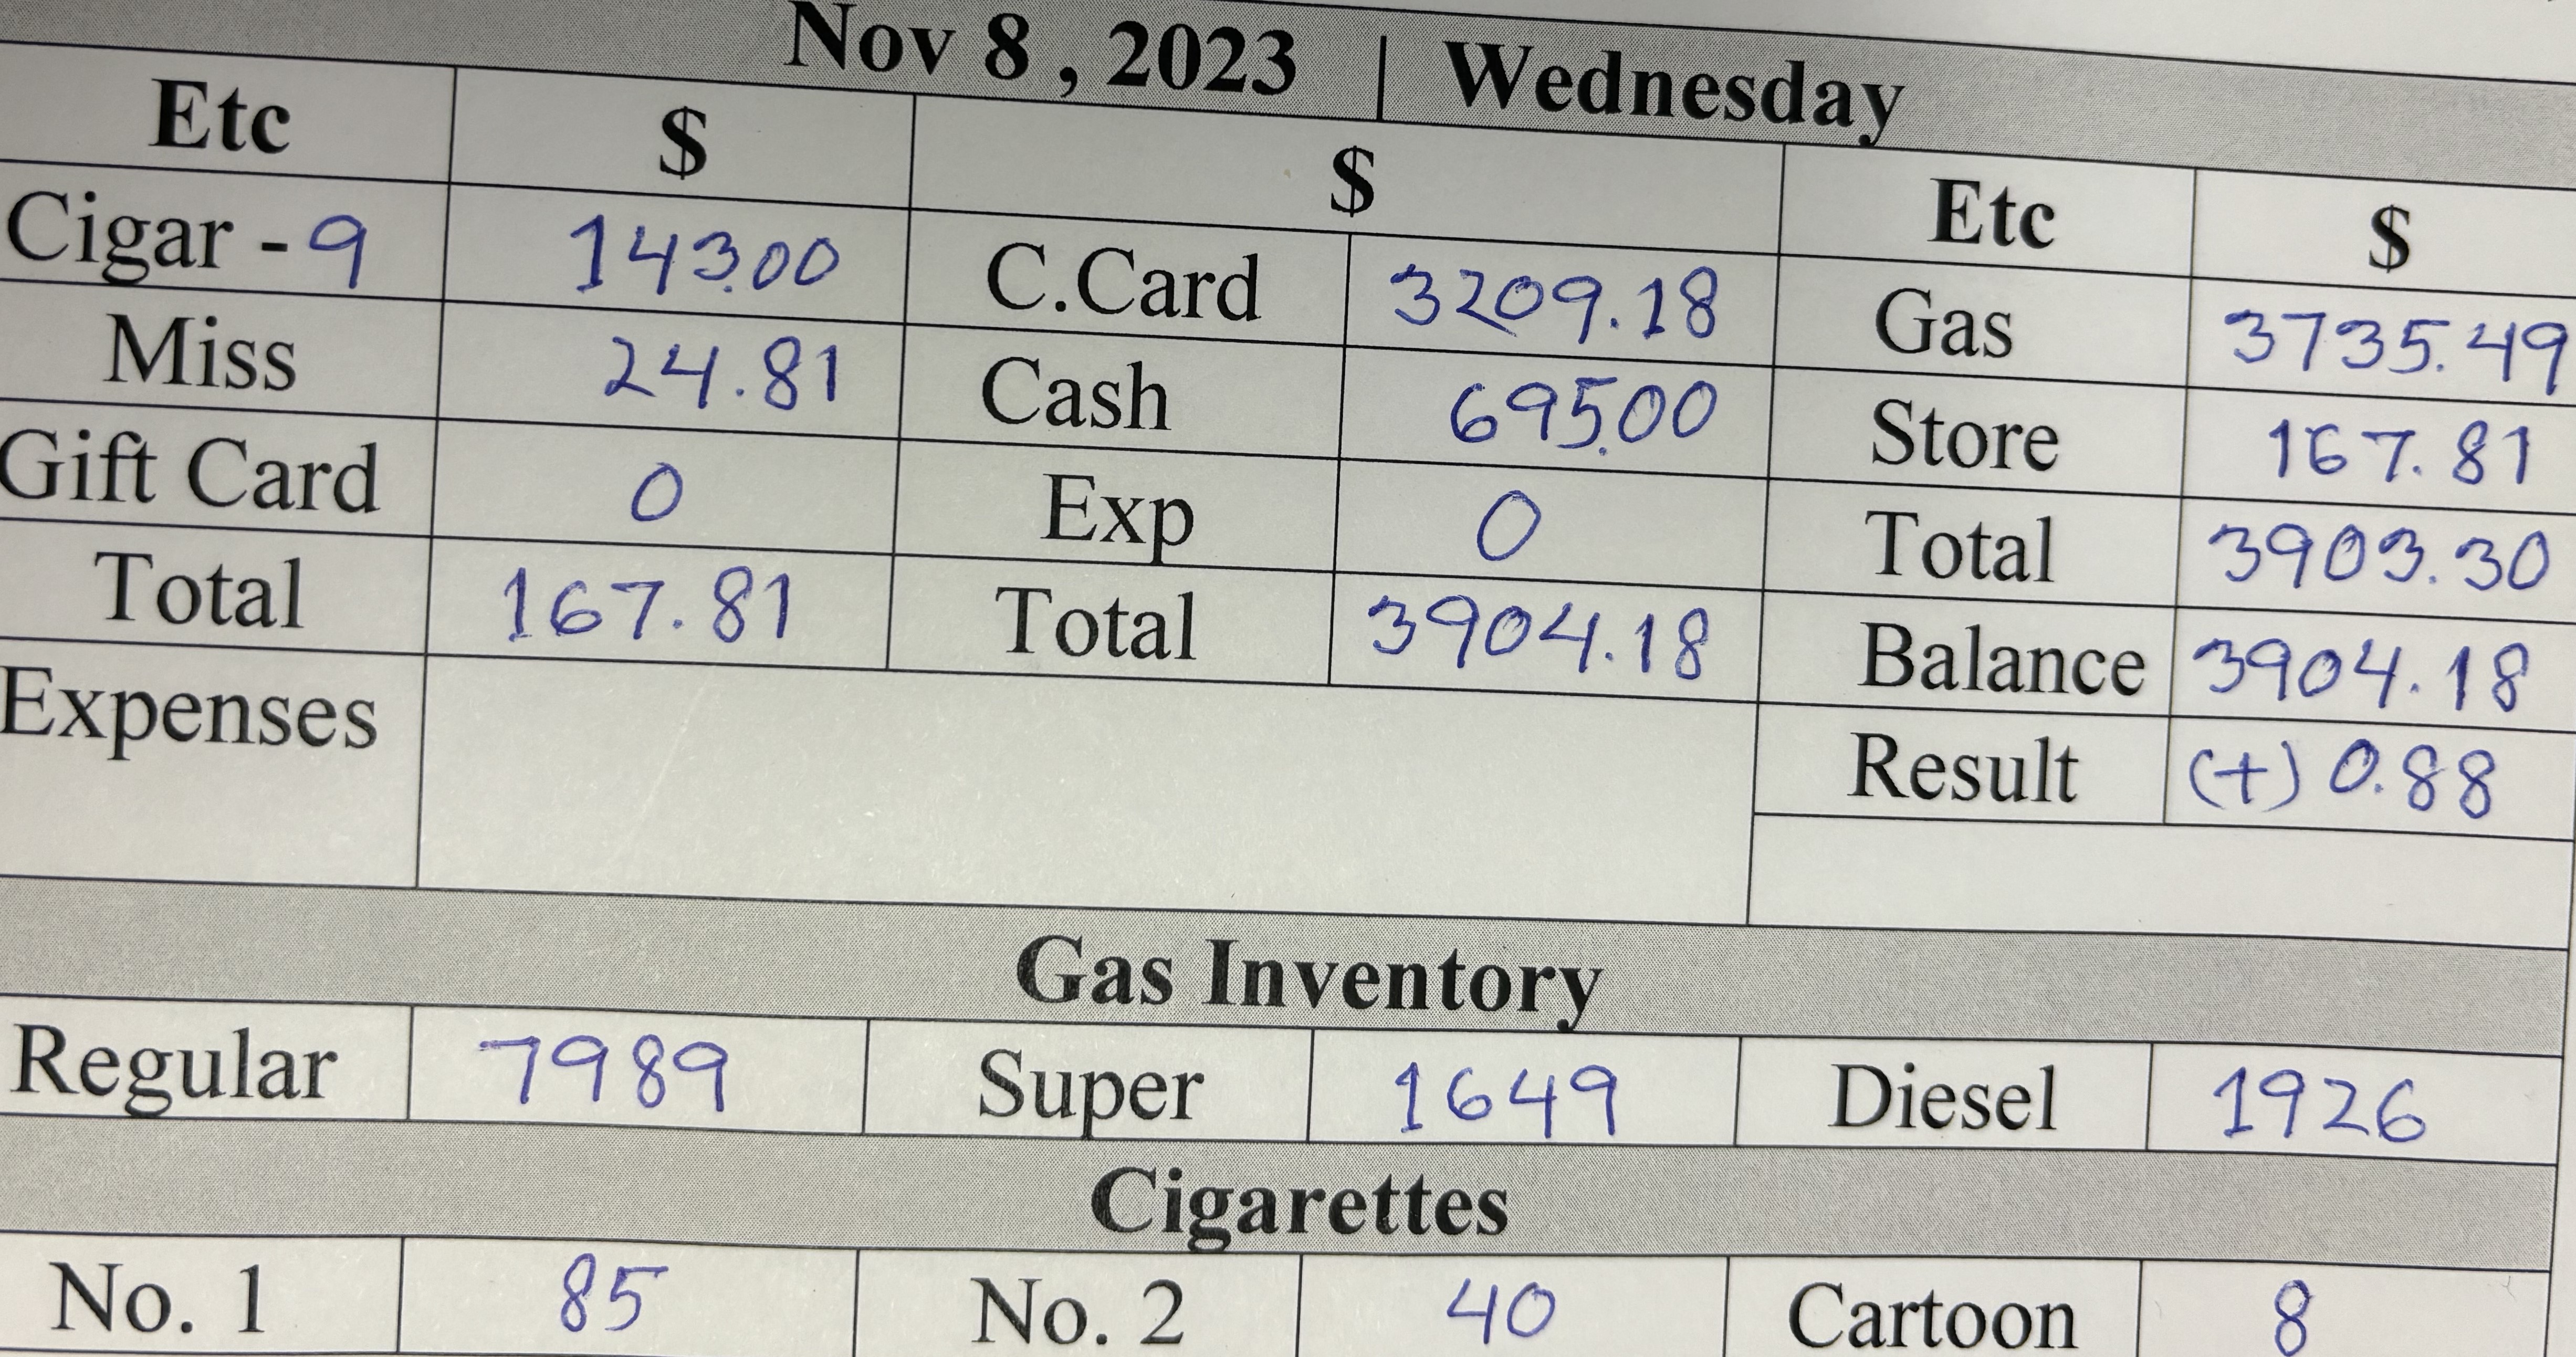 Nov 8 , 2023 | Wednesday
Etc $ $ Etc $
Cigar - 9 143.00 C.Card 3209.18 Gas 3735.49
Miss 24.81 Cash 695.00 Store 167.81
Gift Card 0 Exp 0 Total 3903.30
Total 167.81 Total 3904.18 Balance 3904.18
Expenses Result (+) 0.88
Gas Inventory
Regular 7989 Super 1649 Diesel 1926
Cigarettes
No. 1 85 No. 2 40 Cartoon 8